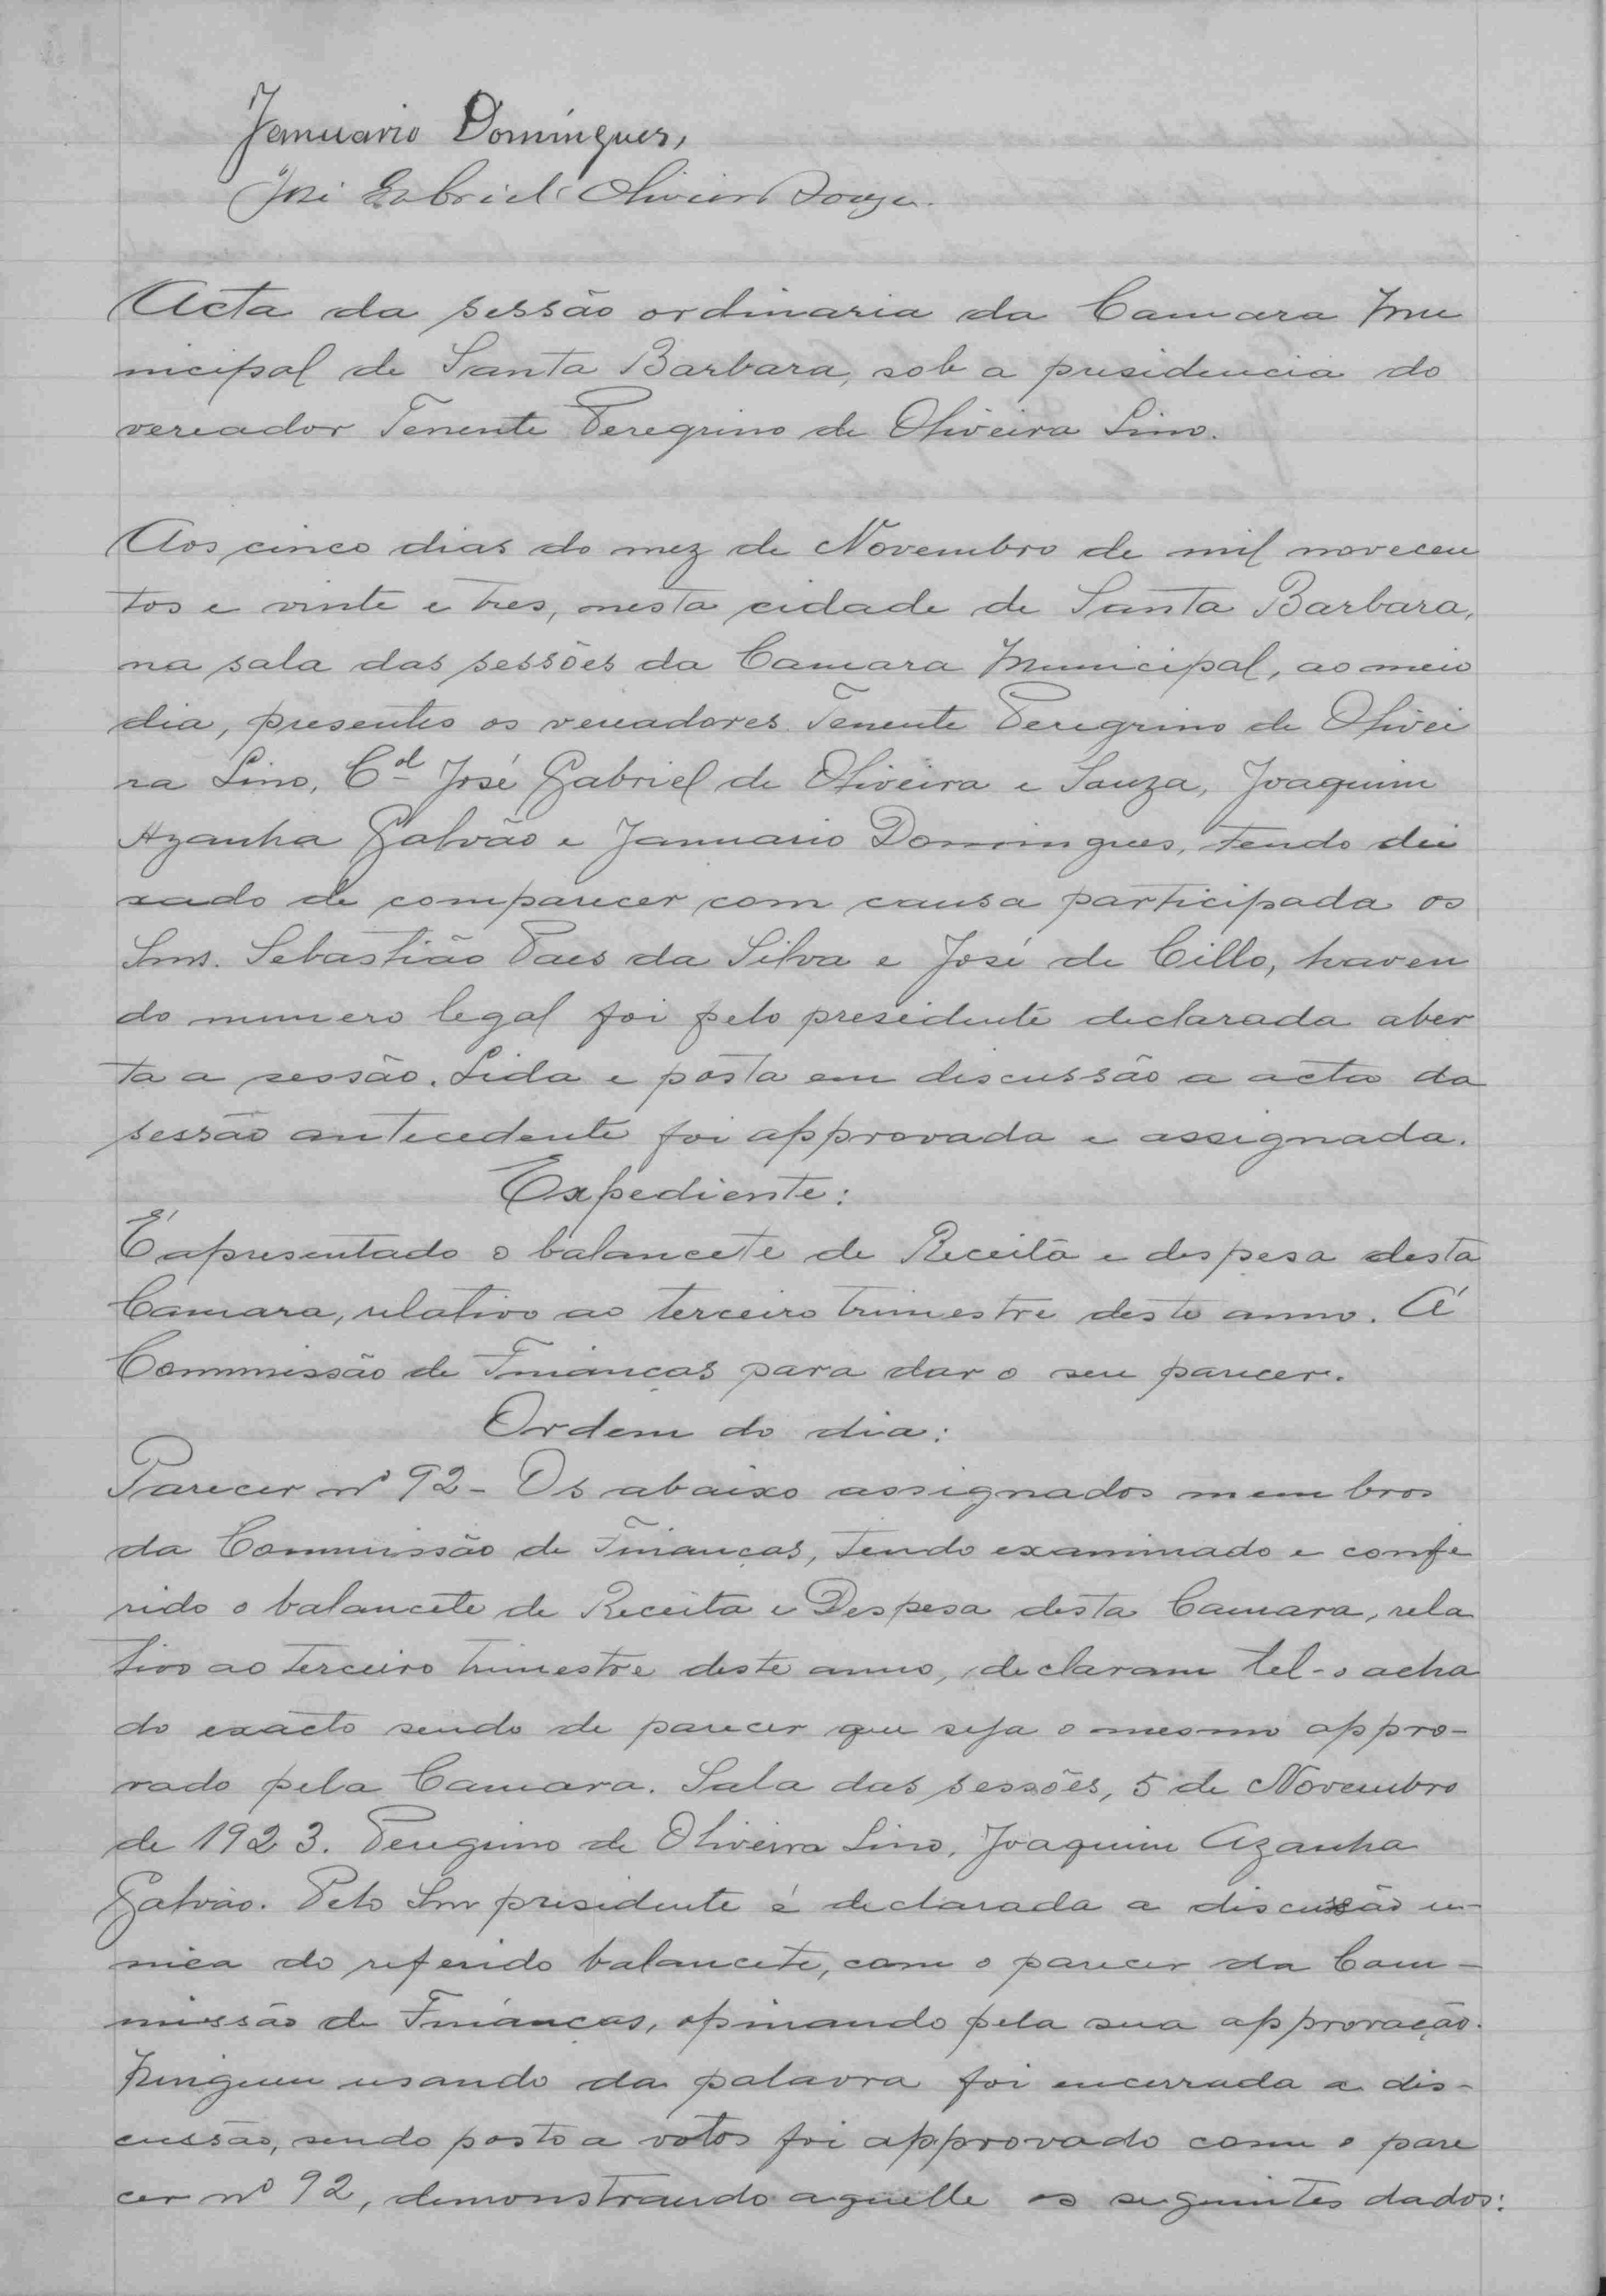 Januario Domingues,
José Gabriel Oliveira Souza.
Acta da sessão ordinaria da Camara Mu
nicipal de Santa Barbara, sob a presidencia do
vereador Tenente Peregrino de Oliveira Lino.
Aos cinco dias do mez de Novembro de mil novecen
tos e vinte e tres, nesta cidade de Santa Barbara,
na sala das sessões da Camara Municipal, ao meio
dia, presentes os vereadores Tenente Peregrino de Olivei
ra Lino, Cel José Gabriel de Oliveira e Souza, Joaquim
Azanha Galvão e Januario Domingues, tendo dei
xado de comparecer com causa participada os
Snrs. Sebastião Paes da Silva e José de Cillo, haven
do numero legal foi pelo presidente declarada aber
ta a sessão. Lida e posta em discussão a acta da
sessão antecedente foi approvada e assignada.
Expediente:
É apresentado o balancete de Receita e despesa desta
Camara, relativo ao terceiro trimestre deste anno. Á
Commissão de Finanças para dar o seu parecer.
Ordem do dia:
Parecer nº 92 - Os abaixo assignados membros
da Commissão de Finanças, tendo examinado e confe
rido o balancete de Receita e Despesa desta Camara, rela
tivo ao terceiro trimestre deste anno, declaram tel-o acha
do exacto sendo de parecer que seja o mesmo appro-
vado pela Camara. Sala das sessões, 5 de Novembro
de 1923. Peregrino de Oliveira Lino, Joaquim Azanha
Galvão. Pelo Snr presidente é declarada a discussão u-
nica do referido balancete, com o parecer da Com-
missão de Finanças, opinando pela sua approvação.
Ninguem usando da palavra foi encerrada a dis-
cussão, sendo posto a votos foi approvado com o pare
cer nº 92, demonstrando aquelle os seguintes dados: